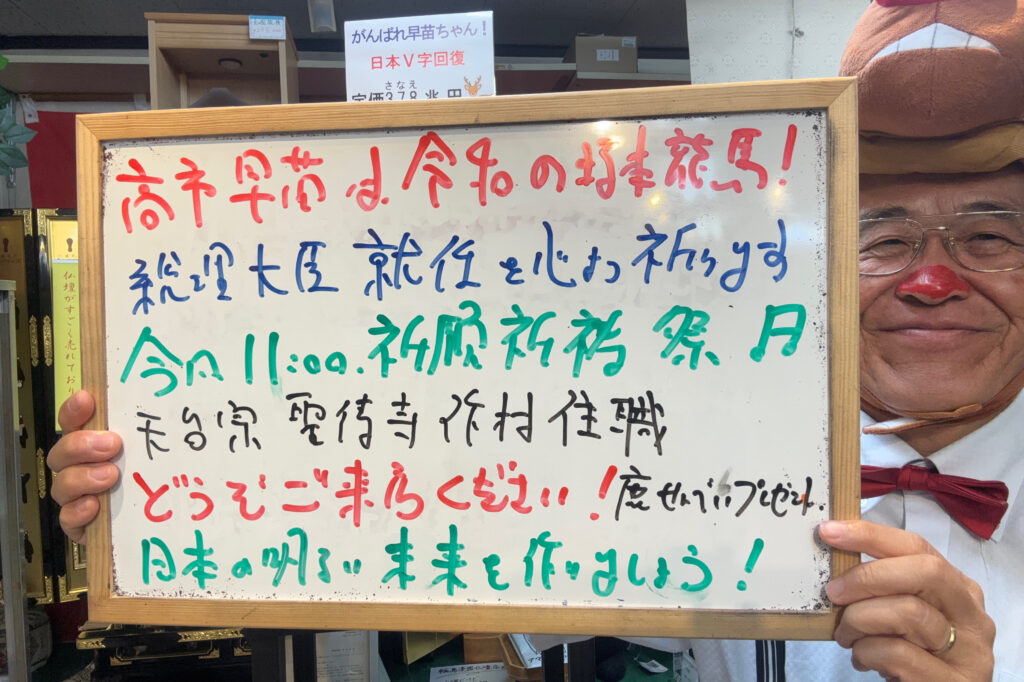 がんばれ早苗ちゃん!
日本V字回復
さなえ
定価378兆円
高市早苗は令和の坂本龍馬!
総理大臣就任を心より祈ります
今日11:00.祈願祈祷祭月
天台宗 聖徳寺 作村住職
どうぞご来店ください!鹿せんべいプレゼント.
日本の明るい未来を作りましょう!
仏壇がすごく売れており